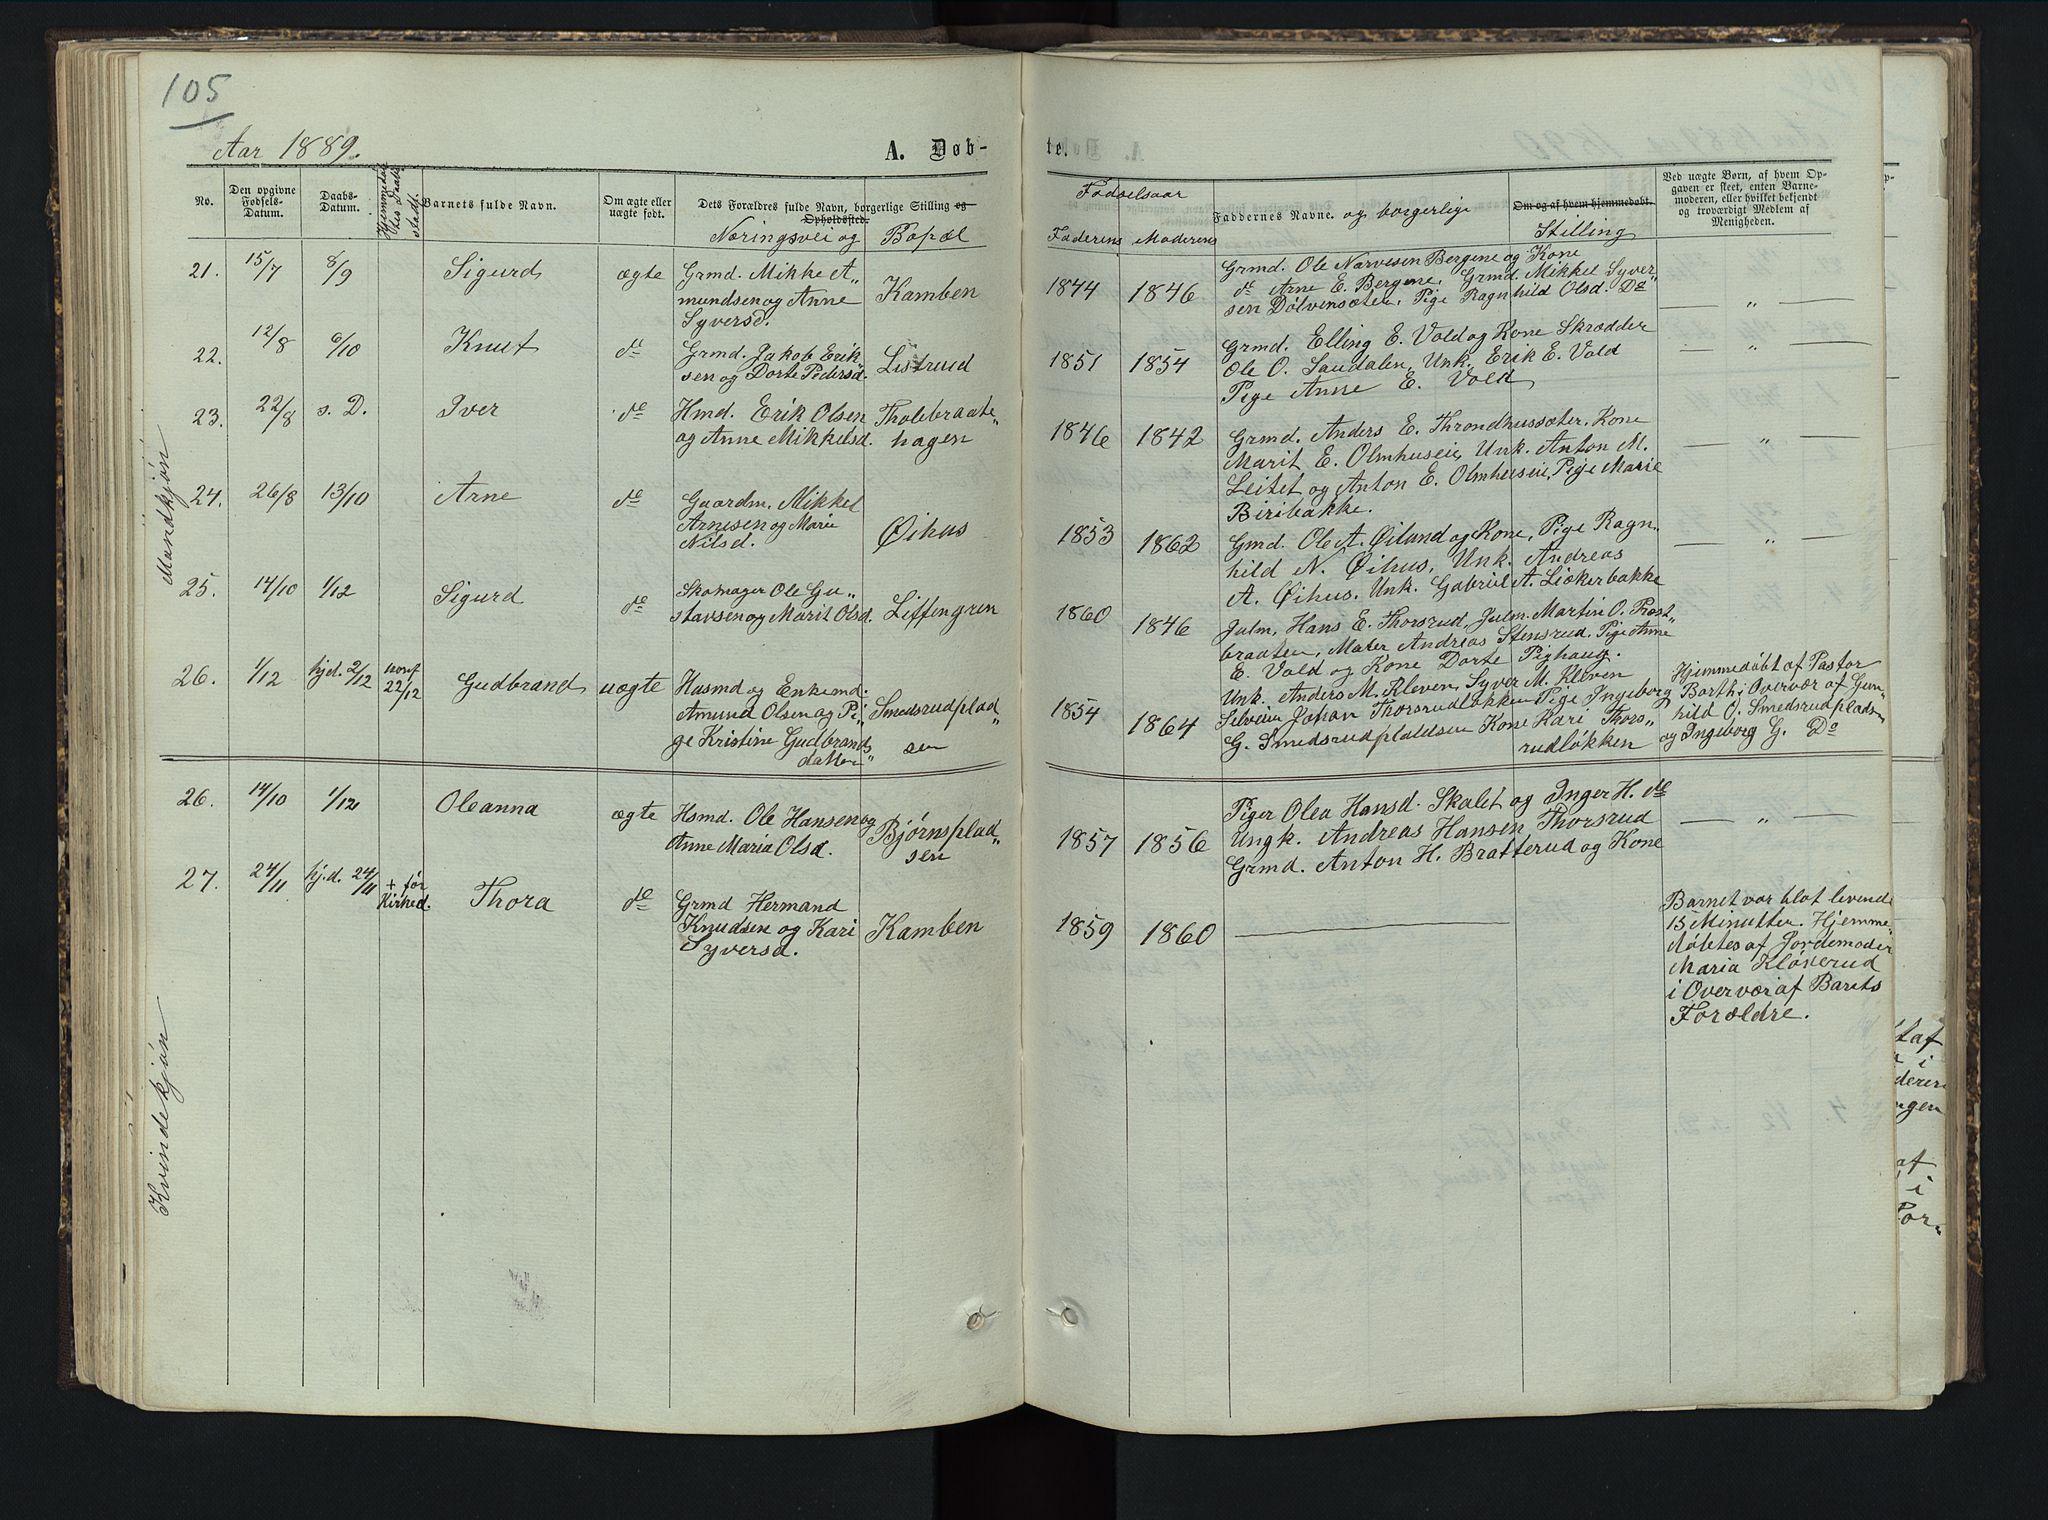 105
Aar 1889.
A. Døb-
te.
No.
Den opgivne Fødsels-Datum.
Daabs-Datum.
Hjemmedøb
Barnets fulde Navn.
Om ægte eller uægte født.
Dets Forældres fulde Navn, borgerlige Stilling og Opholdssted.
Næringsvei og Bopæl
Fødselsaar
Faderens Moderens
Faddernes Navne. og borgerlige
Om og af hvem hjemmedøbt.
Stilling
Ved uægte Børn, af hvem Op-
gaven er skeet, enten Barne-
moderen, eller hvilket bekjendt
og troværdigt Medlem af
Menigheden.
Mandkjøn
21. 15/7 8/9 Sigurd ægte
Grmd. Mikkel A„
mundsen og Anne
Syversd.
Kamben
1844 1846
Grmd. Ole Narvesen Bergene og Kone
de Arne E. Bergene, Grmd. Mikkel Syver„
sen Dølvensæter, Pige Ragnhild Olsd. Do
— „ —
22. 12/8 6/10 Knut de
Grmd. Jakob Erik
sen og Dorte Pedersd.
Listrud
1851 1854
Grmd. Elling E. Vold og Kone Skrædder
Ole O. Saudalen, Unk. Erik E. Vold
Pige Anne E. Vold
— „ —
23. 22/8 s. D. Iver de
Hmd. Erik Olsen
og Anne Mikkelsd.
Tholebraate„
hagen
1846 1842
Grmd. Anders E. Throndhussæter, Kone
Marit E. Olmhuseie, Unk. Anton M.
Leitet og Anton E. Olmhuseie, Pige Marie
Biribakke.
— „ —
24. 26/8 13/10 Arne de
Gaardm. Mikkel
Arnesen og Marie
Nilsd.
Øihus
1853 1862
Gmd. Ole A. Øilund og Kone, Pige Ragn.
hild N. Øihus, Unk. Andreas
A. Øihus. Unk. Gabriel A. Liøkerbakke
— „ —
25. 14/10 1/12 Sigurd de
Skomager Ole Gu„
stavsen og Marit Olsd.
Liffengren
1860 1846
Julm, Hans E. Thorsrud, Julm. Martin O. Prøst„
braaten, Maler Andreas Stensrud, Pige Anne
E. Vold og Kone Dorte Pighaug.
26. 1/12 hjd. 2/12 22/12 Gudbrand uægte
Husmd og Enkemd.
Amund Olsen og Pi
ge Kristine Gudbrands
datter
Smedsrudplad„
sen
1854 1864
Unk. Anders M. Kleven, Syver M. Kleven
Johan Thorsrudløkken Pige Ingeborg
G. Smedsrudpladsen Kone Kari Thors„
rudløkken
Hjemmedøbt af Pastor
Barth i Overvær af Gun„
hild O. Smedsrudpladsen
og Ingeborg G. Do
Kvindekjøn
26. 14/10 1/12 Oleanna ægte
Hsmd. Ole Hansen og
Anne Maria Olsd.
Bjørnsplad„
sen
1857 1856
Piger Olea Hansd. Skalet og Inger H. de
Ungk. Andreas Hansen Thorsrud
Grmd. Anton H. Bratterud og Kone
— „ —
27. 24/11 hj.d. 24/11 + før Kirked. Thora de
Grmd Hermand
Knudsen og Kari
Syversd.
Kamben
1859 1860
Barnet var blot levende
15 Minutter. Hjemme„
døbtes af Jordemoder
Maria Kløverud
i Overvær af Barnets
Forældre.